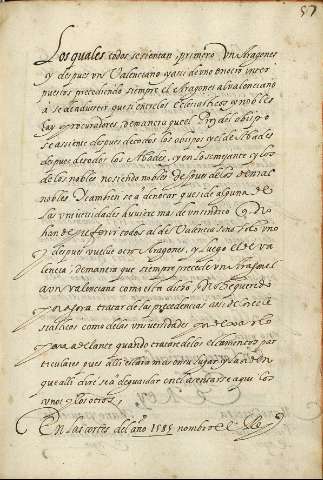 57
Los quales todos se sientan primero Un Aragones
y despues un Valenciano y assi de uno en otro
puestos precediendo siempre el Aragones al valenciano
a se de aduertir que si entre los Eclesiasticos y nobles
hay procuradores, de manera que el Pror del obispo
se assiente despues de todos los obispos y el de Abades
despues de todos los Abades, y en lo semejante el
de los nobles no siendo noble despues de los demas
nobles Y tambien se a de notar que si de alguna de
las vniuersidades huuiere mas de un sindico no
han de preferir todos al de Valencia sino solo uno
y despues vuelve otro Aragones, y luego el de va
lencia, de manera que siempre precede un Aragones
a un valenciano como esta dicho, no he querido
yo agora tratar de las precedencias assi de ecle
siasticos como de las vniuersidades y dexarlo
para adelante quando tratare de los estamentos par
ticulares pues alli estara mas en su lugar y la orden
que alli dire se a de guardar en el assentarse aqui los
unos y los otros,
En las cortes del año 1585 nombro el